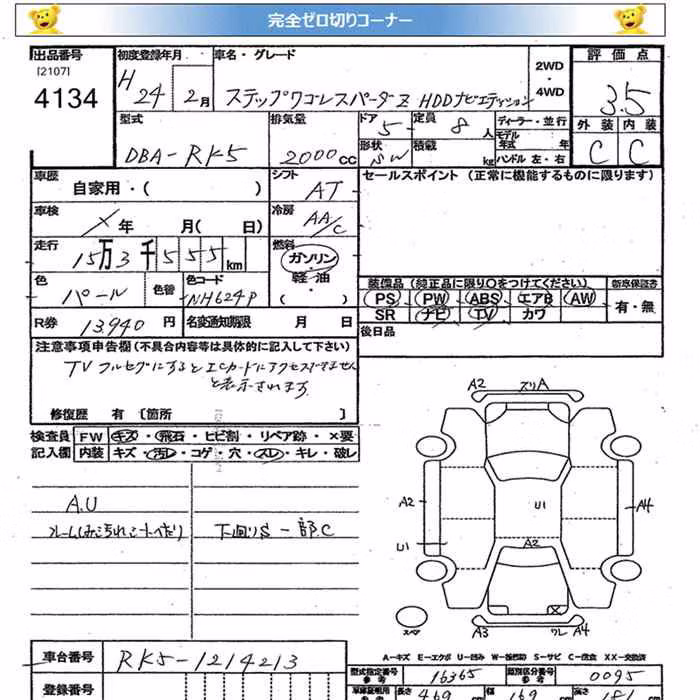 完全ゼロ切りコーナー
出品番号 初度登録年月 車名・グレード 評価点
[2107] 4134
H 24 2月 ステップワゴンスパーダZ HDDナビエディション 2WD・4WD 3.5
型式 排気量 ドア 5 定員 8人 ディーラー・並行 外装 内装
DBA-RK5 2000cc 形状 SW 積載 kg モデル年式 年 ハンドル 左・右 C C
車歴 自家用・( ) シフト AT セールスポイント (正常に機能するものに限ります)
車検 年 月( 日) 冷房 AA/C
走行 15万3千555km 燃料 ガソリン・軽油・( )
色 パール 色替 色コード NH624P 装備品 (純正品に限り〇をつけてください) 新車保証書
PS PW ABS エアB AW 有・無
SR ナビ TV カワ
R券 13940円 名変通知期限 月 日 後日品
注意事項申告欄 (不具合内容等は具体的に記入して下さい)
TVフルセグにするとICカードにアクセスできません
と表示されます
修復歴 有 [箇所 ]
検査員 FW キズ・飛石・ヒビ割・リペア跡・×要
記入欄 内装 キズ・汚レ・コゲ・穴・スレ・キレ・破レ
A.U
下廻りS 一部C
A2 スリA
A2 U1 A4
U1 A2
スペア A3 ワレ A4
A=キズ E=エクボ U=凹み W=補修跡 S=サビ C=腐食 XX=交換済
車台番号 RK5-1214213 型式指定番号 参考 16365 類別区分番号 参考 0095
登録番号 長さ 469 幅 169 高さ 181